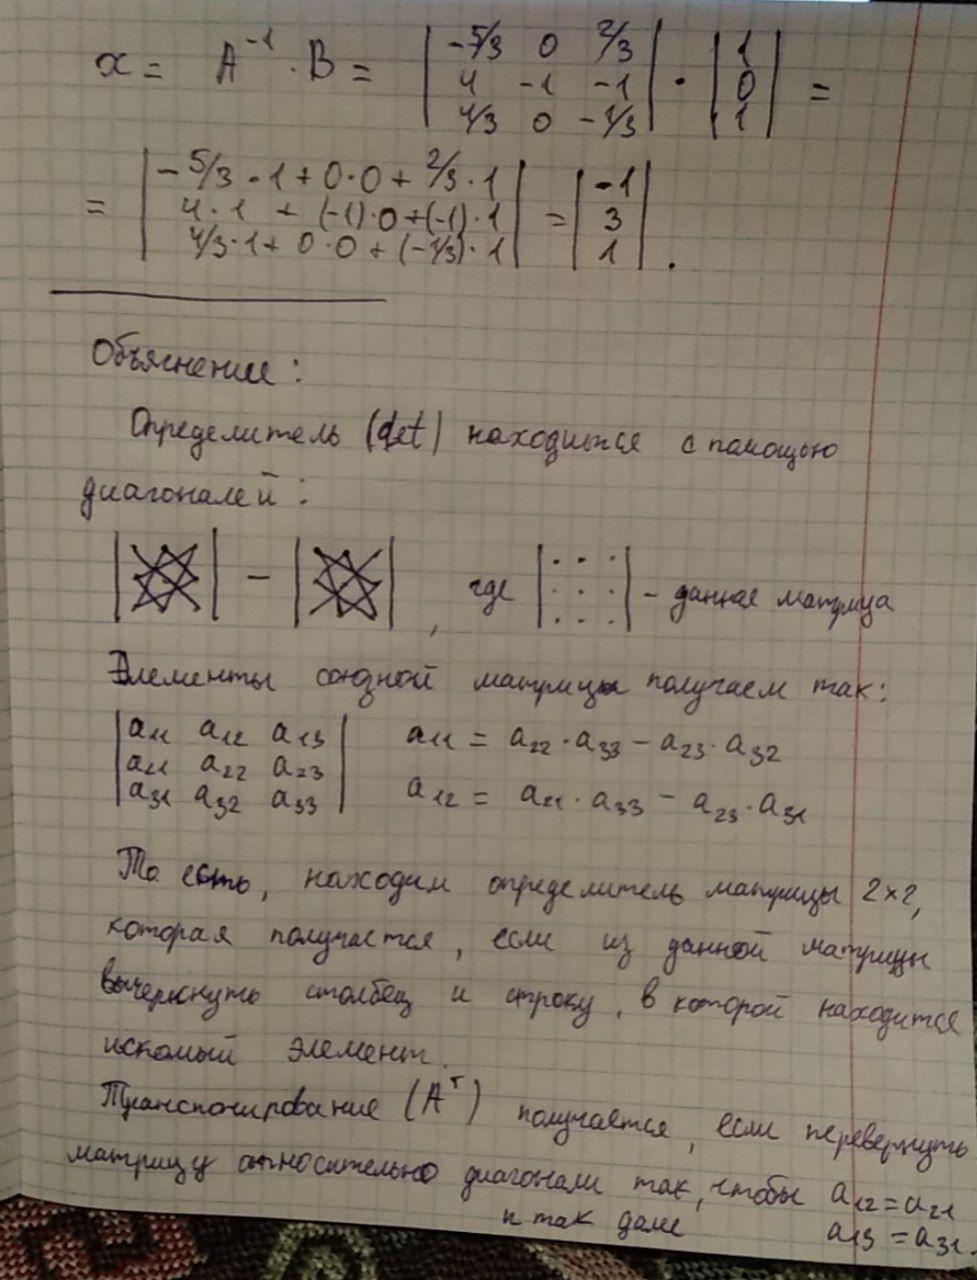 x = A⁻¹ · B = | -5/3 0 2/3 | · | 1 | =
| 4 -1 -1 | | 0 |
| 4/3 0 -1/3 | | 1 |
= | -5/3 · 1 + 0·0 + 2/3 · 1 | = | -1 |
| 4 · 1 + (-1)·0 + (-1)·1 | | 3 |
| 4/3 · 1 + 0·0 + (-1/3)·1 | | 1 | .
Объяснение:
Определитель (det) находится с помощью
диагоналей:
| | - | | , где | | - данная матрица
Элементы союзной матрицы получаем так:
| a11 a12 a13 | a11 = a22 · a33 - a23 · a32
| a21 a22 a23 |
| a31 a32 a33 | a12 = a21 · a33 - a23 · a31
То есть, находим определитель матрицы 2×2,
которая получается, если из данной матрицы
вычеркнуть столбец и строку, в которой находится
искомый элемент.
Транспонирование (Aᵀ) получается, если перевернуть
матрицу относительно диагонали так, чтобы a12 = a21
и так дале a13 = a31